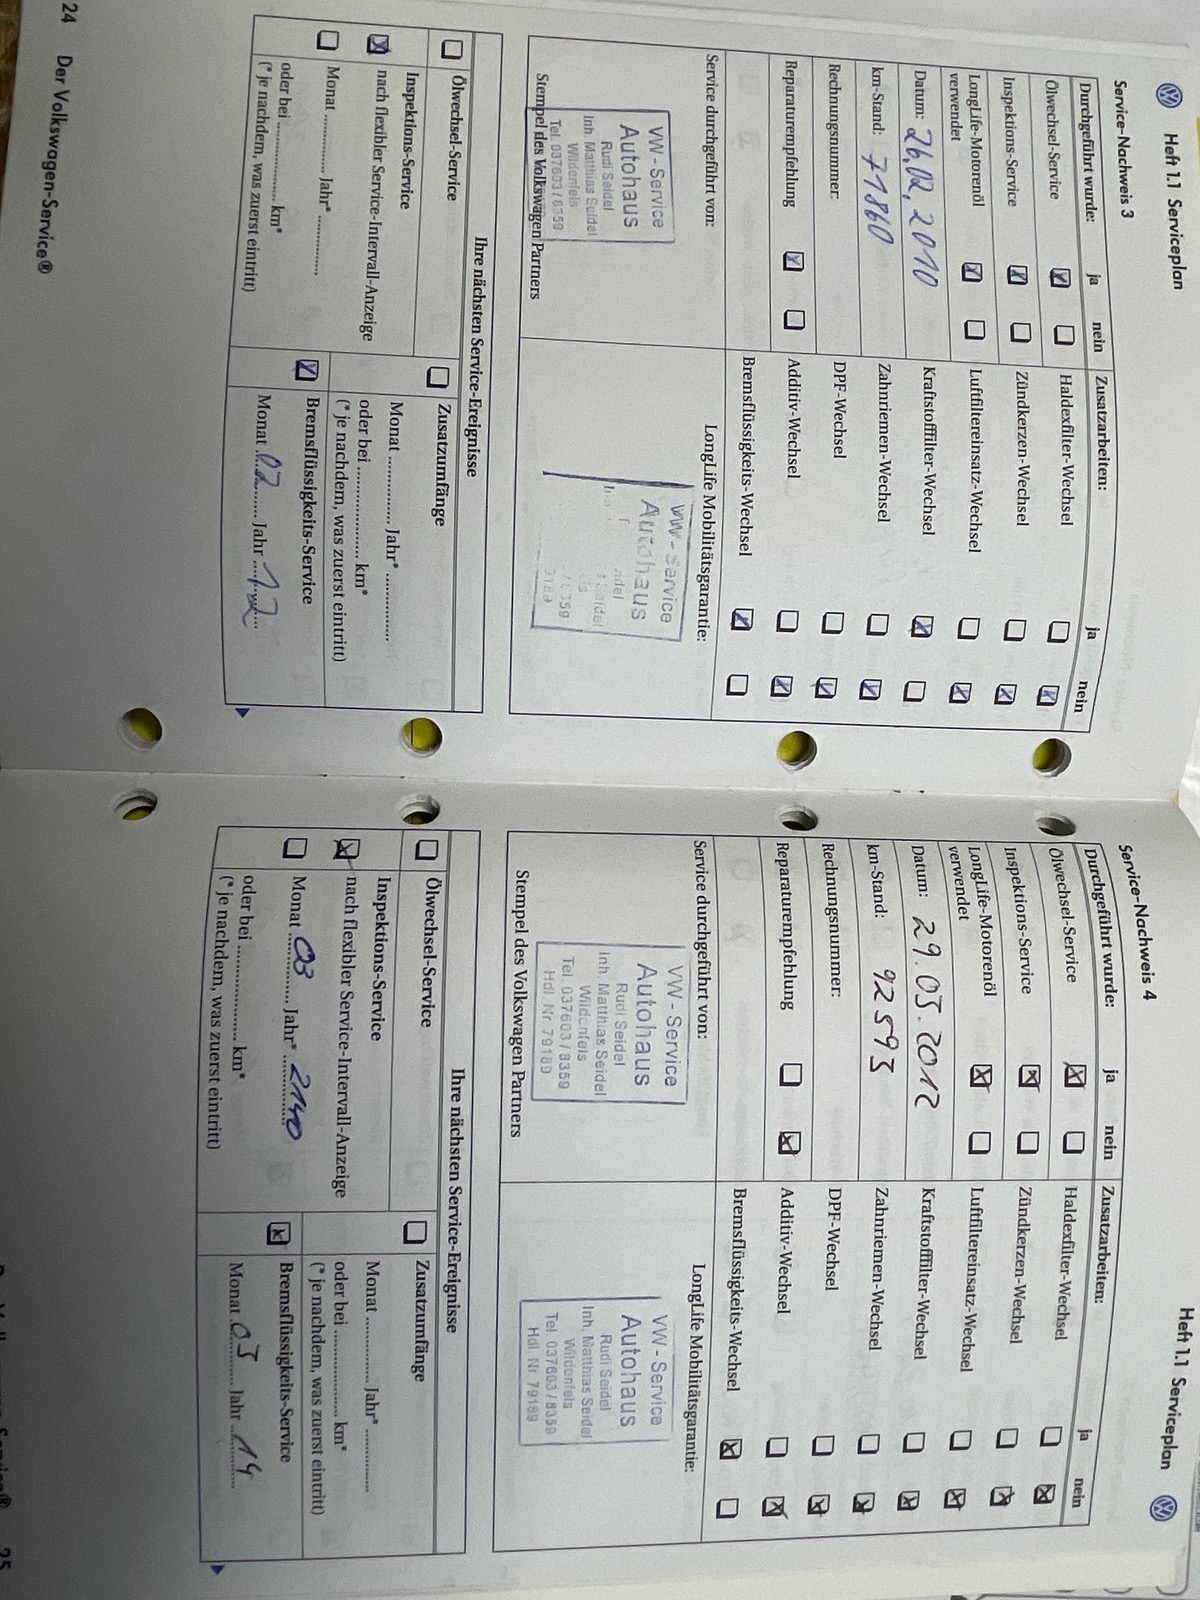 Heft 1.1 Serviceplan
Service-Nachweis 3
Durchgeführt wurde: ja nein
Ölwechsel-Service
Inspektions-Service
LongLife-Motorenöl
verwendet
Datum: 26.02.2010
km-Stand: 71860
Rechnungsnummer:
Reparaturempfehlung
Zusatzarbeiten: ja nein
Haldexfilter-Wechsel
Zündkerzen-Wechsel
Luftfiltereinsatz-Wechsel
Kraftstofffilter-Wechsel
Zahnriemen-Wechsel
DPF-Wechsel
Additiv-Wechsel
Bremsflüssigkeits-Wechsel
Service durchgeführt von:
VW-Service
Autohaus
Rudi Seidel
Inh. Matthias Seidel
Wildenfels
Stempel des Volkswagen Partners
LongLife Mobilitätsgarantie:
VW-Service
Autohaus
Seidel
Ihre nächsten Service-Ereignisse
Ölwechsel-Service
Inspektions-Service
nach flexibler Service-Intervall-Anzeige
Monat ............ Jahr* ............
oder bei ................ km*
(* je nachdem, was zuerst eintritt)
Zusatzumfänge
Monat ............ Jahr* ............
oder bei ................ km*
(* je nachdem, was zuerst eintritt)
Bremsflüssigkeits-Service
Monat 02 Jahr 12
24 Der Volkswagen-Service®
Heft 1.1 Serviceplan
Service-Nachweis 4
Durchgeführt wurde: ja nein
Ölwechsel-Service
Inspektions-Service
LongLife-Motorenöl
verwendet
Datum: 29.03.2012
km-Stand: 92593
Rechnungsnummer:
Reparaturempfehlung
Zusatzarbeiten: ja nein
Haldexfilter-Wechsel
Zündkerzen-Wechsel
Luftfiltereinsatz-Wechsel
Kraftstofffilter-Wechsel
Zahnriemen-Wechsel
DPF-Wechsel
Additiv-Wechsel
Bremsflüssigkeits-Wechsel
Service durchgeführt von:
VW-Service
Autohaus
Rudi Seidel
Inh. Matthias Seidel
Wildenfels
Tel. 037603/8359
Hdl. Nr. 79189
Stempel des Volkswagen Partners
LongLife Mobilitätsgarantie:
VW-Service
Autohaus
Rudi Seidel
Inh. Matthias Seidel
Wildenfels
Tel. 037603/8359
Hdl. Nr. 79189
Ihre nächsten Service-Ereignisse
Ölwechsel-Service
Inspektions-Service
nach flexibler Service-Intervall-Anzeige
Monat 03 Jahr*
oder bei ................ km*
(* je nachdem, was zuerst eintritt)
Zusatzumfänge
Monat ............ Jahr* ............
oder bei ................ km*
(* je nachdem, was zuerst eintritt)
Bremsflüssigkeits-Service
Monat 03 Jahr 14
25